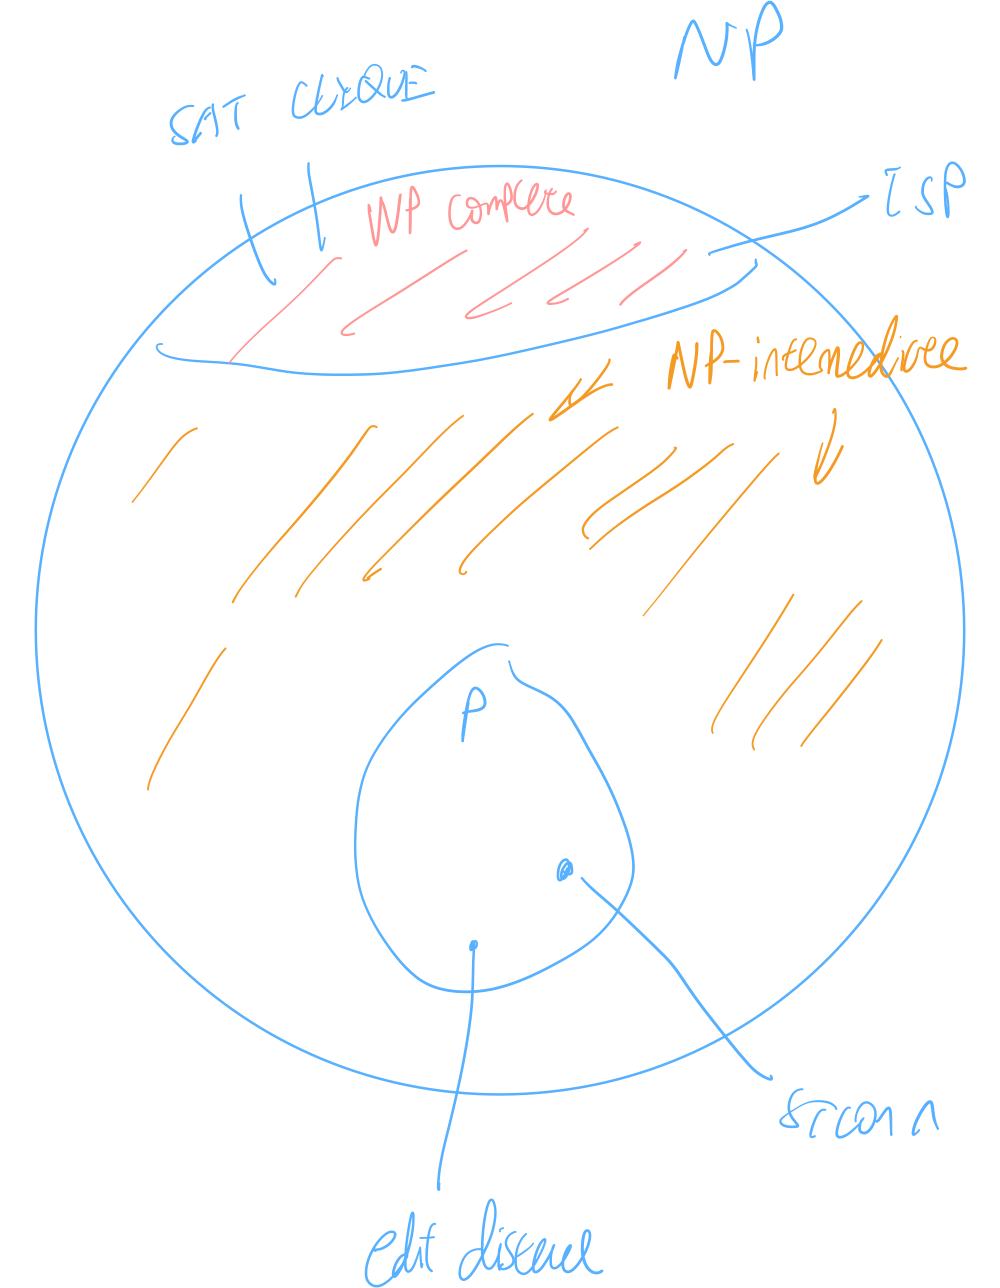 NP
SAT CLIQUE
NP complete
TSP
NP-intermediate
P
STCONN
edit distance